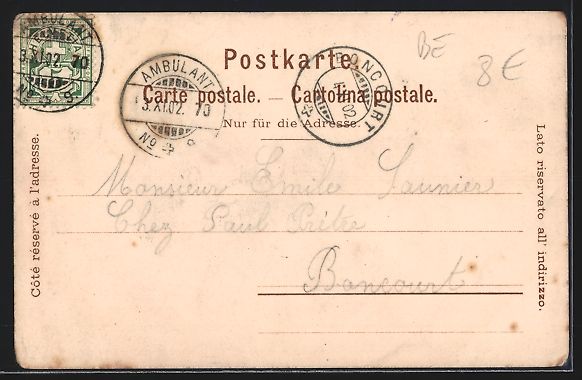 AMBULANT
3.XI.02. 70
AMBULANT
3.XI.02. 70
No 4
BONCOURT
02
BE
8€
Postkarte.
Carte postale. — Cartolina postale.
Nur für die Adresse.
Côté réservé à l'adresse.
Lato riservato all' indirizzo.
Monsieur Emile Saunier
Chez Paul Prêtre
Boncourt